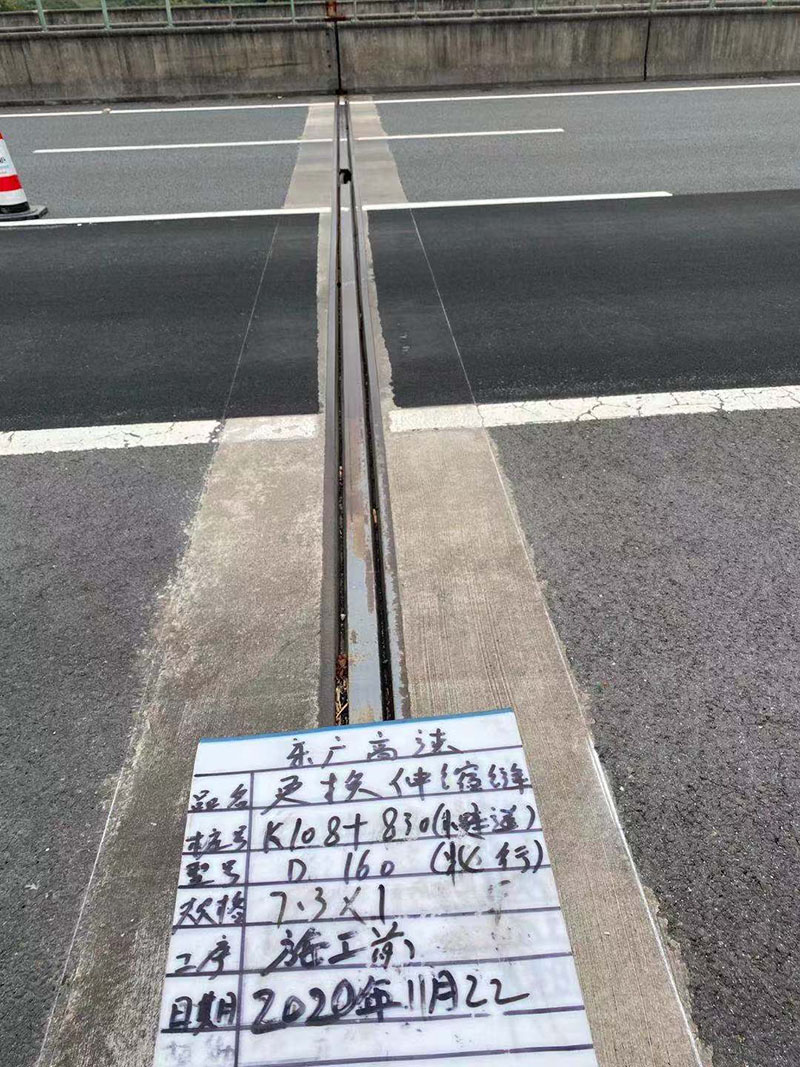 乐广高速
品名 更换伸缩缝
桩号 K108+830(慢道)
型号 D 160 (北行)
双格 7.3×1
工序 施工前
日期 2020年11月22